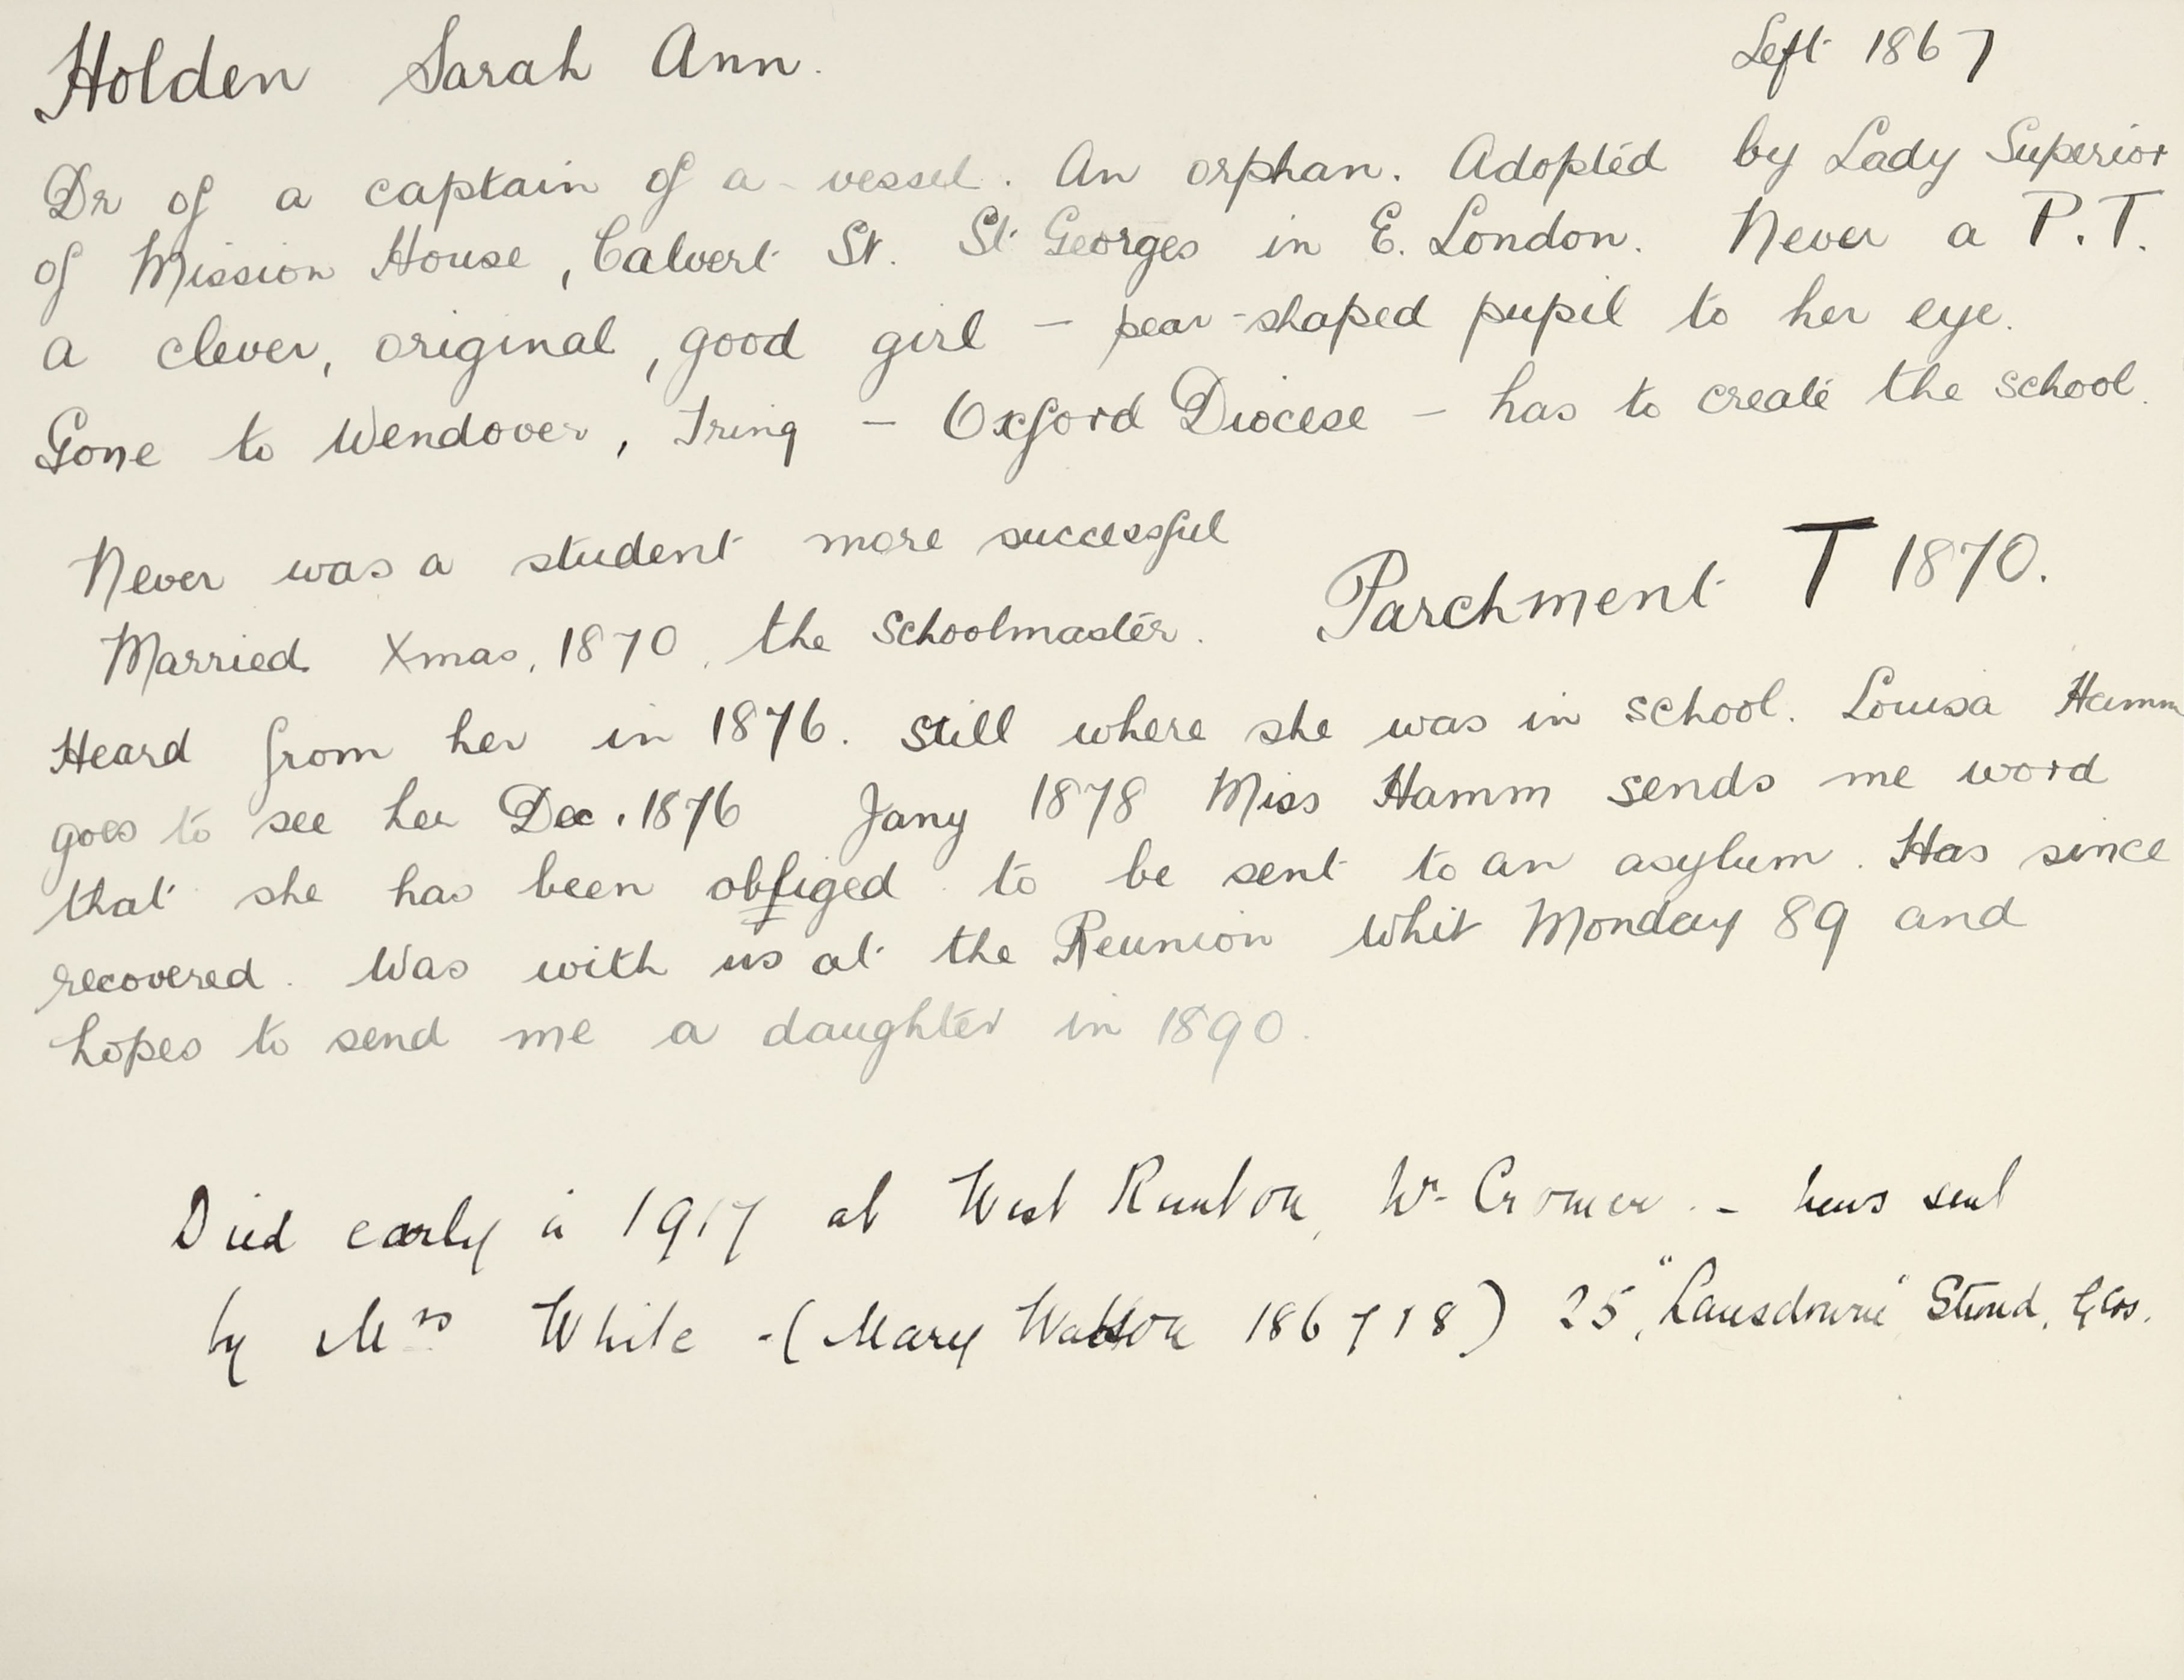 Holden Sarah Ann. Left 1867
Dr of a captain of a vessel. An orphan. Adopted by Lady Superior
of Mission House, Calvert St. St Georges in E. London. Never a P.T.
a clever, original, good girl – pear-shaped pupil to her eye.
Gone to Wendover, Tring – Oxford Diocese – has to create the school.
Never was a student more successful
Parchment T 1870.
Married Xmas, 1870, the Schoolmaster.
Heard from her in 1876. Still where she was in school. Louisa Hamm
goes to see her Dec. 1876 Jany 1878 Miss Hamm sends me word
that she has been obliged to be sent to an asylum. Has since
recovered. Was with us at the Reunion Whit Monday 89 and
hopes to send me a daughter in 1890.
Died early in 1917 at West Runton, Nr Cromer. – news sent
by Mrs White - (Mary Watson 1867 & 8) 25, "Lansdowne" Stroud, Glos.